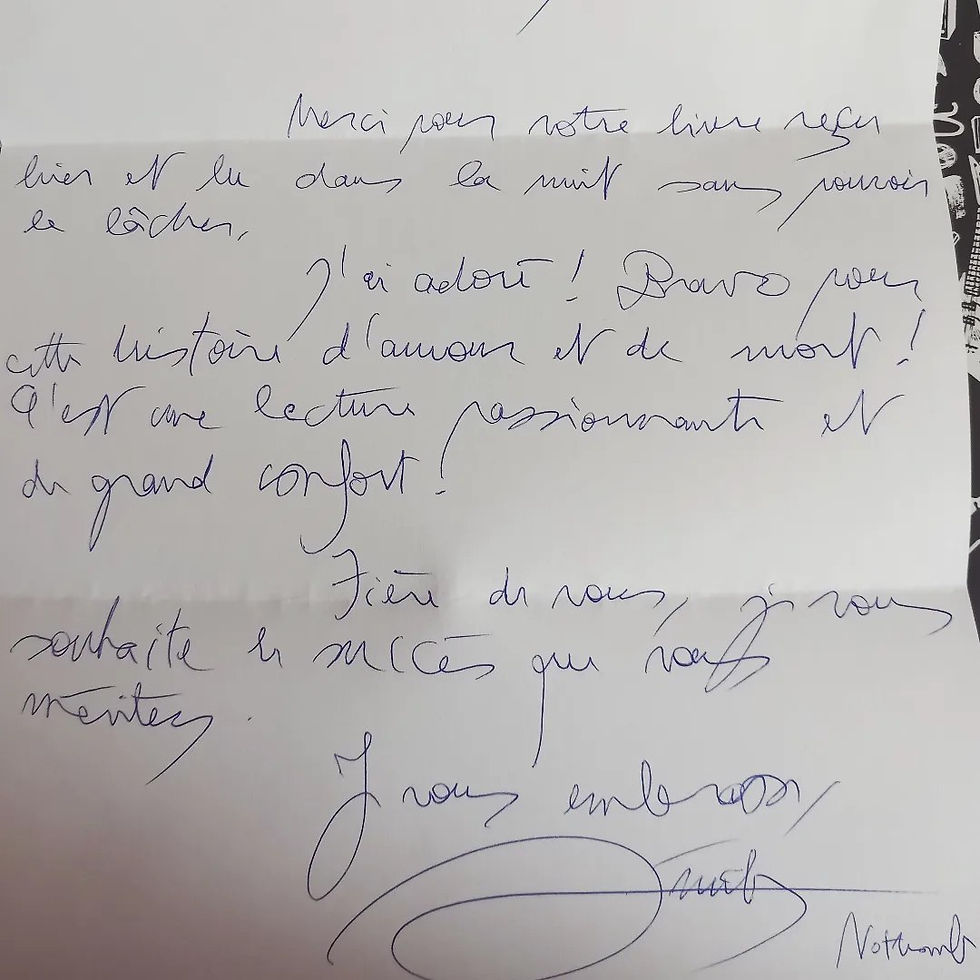 Merci pour votre livre reçu
hier et lu dans la nuit sans pouvoir
le lâcher,
J'ai adoré ! Bravo pour
cette histoire d'amour et de mort !
C'est une lecture passionnante et
de grand confort !
Fière de vous, je vous
souhaite le succès que vous
méritez.
Je vous embrasse,
Amélie
Nothomb